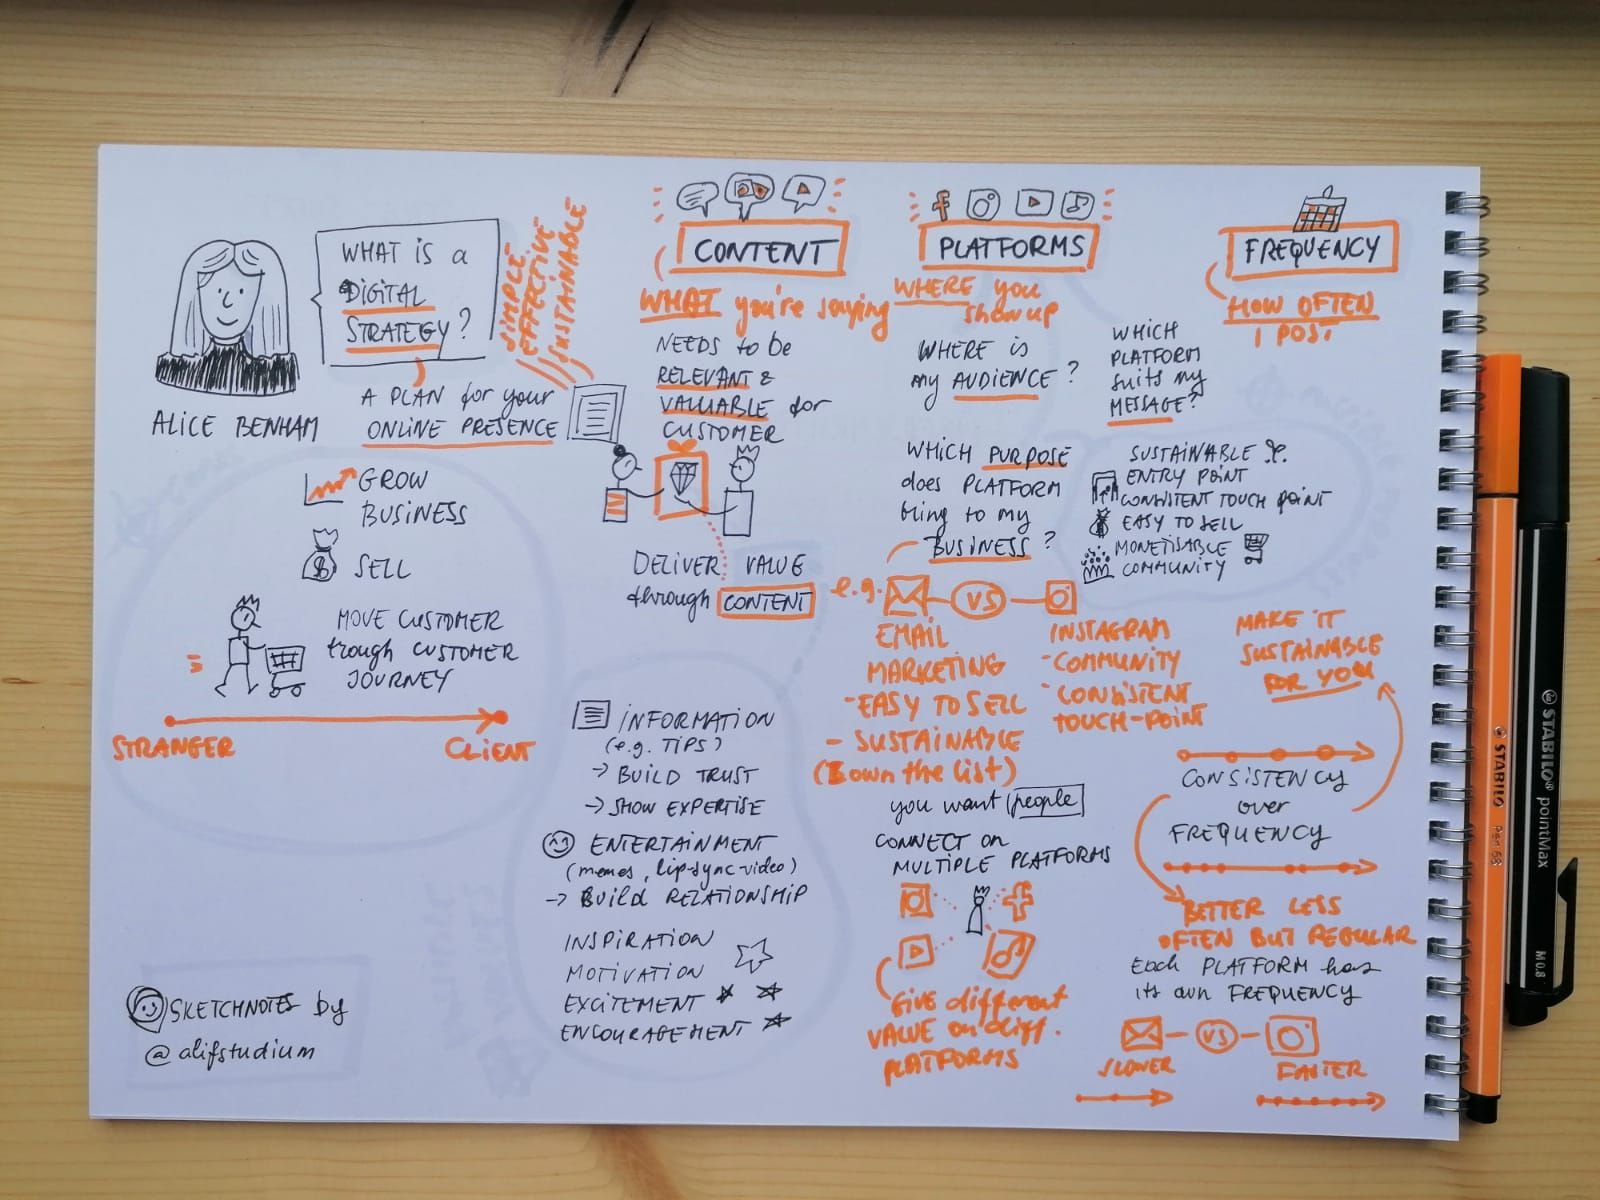 WHAT IS a
DIGITAL
STRATEGY?
SIMPLE
EFFECTIVE
SUSTAINABLE
ALICE BENHAM
A PLAN for your
ONLINE PRESENCE
GROW
BUSINESS
SELL
MOVE CUSTOMER
trough CUSTOMER
JOURNEY
STRANGER
CLIENT
SKETCHNOTES by
@alifstudium
CONTENT
WHAT you're saying
NEEDS to be
RELEVANT &
VALUABLE for
CUSTOMER
DELIVER VALUE
through CONTENT
INFORMATION
(e.g. TIPS)
→ BUILD TRUST
→ SHOW EXPERTISE
ENTERTAINMENT
(memes, lip-sync-video)
→ BUILD RELATIONSHIP
INSPIRATION
MOTIVATION
EXCITEMENT
ENCOURAGEMENT
PLATFORMS
WHERE you
show up
WHERE is
my AUDIENCE?
WHICH
PLATFORM
suits my
MESSAGE?
WHICH PURPOSE
does PLATFORM
bring to my
BUSINESS?
SUSTAINABLE
ENTRY POINT
CONSISTENT TOUCH POINT
EASY TO SELL
MONETISABLE
COMMUNITY
e.g. VS
EMAIL
MARKETING
- EASY TO SELL
- SUSTAINABLE
(I own the list)
INSTAGRAM
- COMMUNITY
- CONSISTENT
TOUCH-POINT
you want people
CONNECT on
MULTIPLE PLATFORMS
GIVE different
VALUE on diff.
PLATFORMS
FREQUENCY
HOW OFTEN
I POST
MAKE IT
SUSTAINABLE
FOR YOU
CONSISTENCY
over
FREQUENCY
BETTER LESS
OFTEN BUT REGULAR
Each PLATFORM has
its own FREQUENCY
VS
SLOWER
FASTER
STABILO
Pen 68
STABILO pointMax
M 0.8